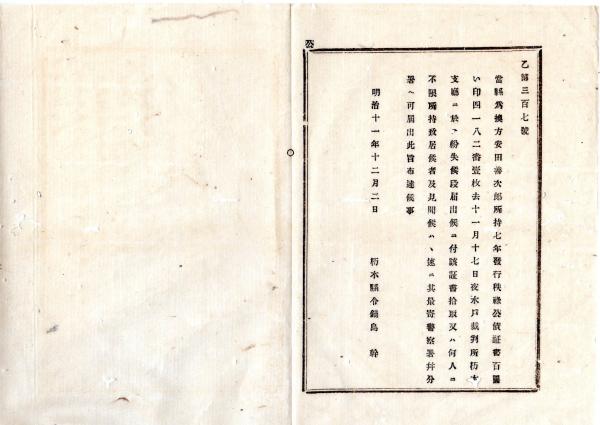 乙第三百七號
當縣爲換方安田善次郎所持七年發行秩祿公債証書百圓
い印四一八二番壹枚去十一月十七日夜水戸裁判所栃木
支廳ニ於テ紛失候段届出候ニ付該証書拾取又ハ何人ニ
不限所持致居候者及見聞候ハヽ速ニ其最寄警察署幷分
署ヘ可届出此旨布達候事
明治十一年十二月二日
栃木縣令鍋島 幹
公